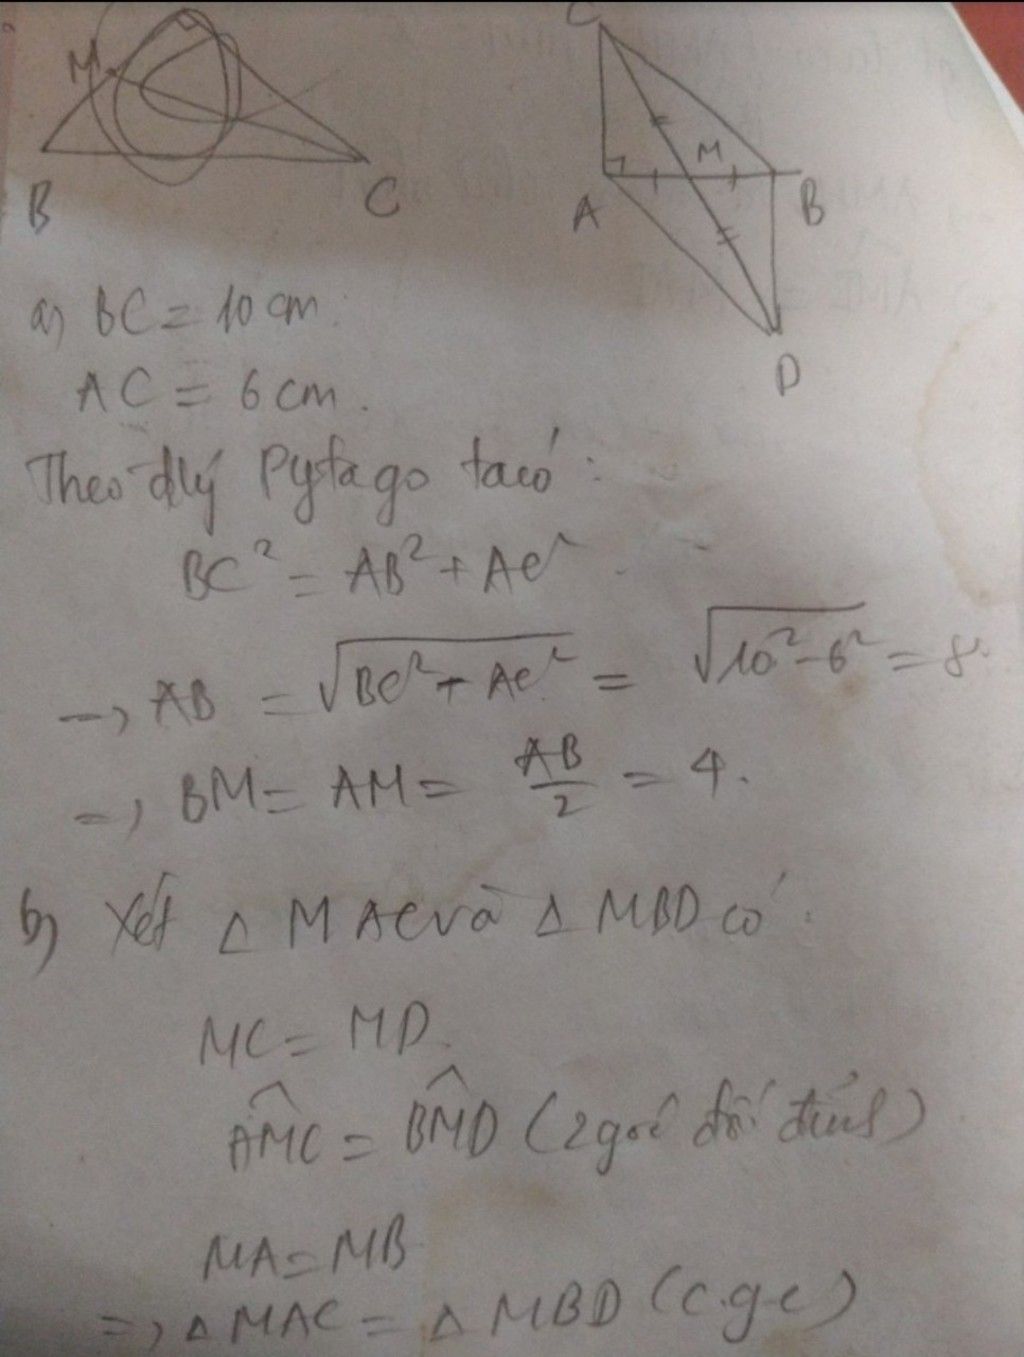 M
B
C
C
A
M
B
D
a) BC = 10 cm.
AC = 6 cm.
Theo đlý Pytago ta có :
BC² = AB² + AC².
→ AB = √BC² - AC² = √10² - 6² = 8.
=> BM = AM = AB/2 = 4.
b) Xét △ MAC và △ MBD có :
MC = MD.
AMC = BMD (2 góc đối đỉnh)
MA = MB
=> △ MAC = △ MBD (c.g.c)